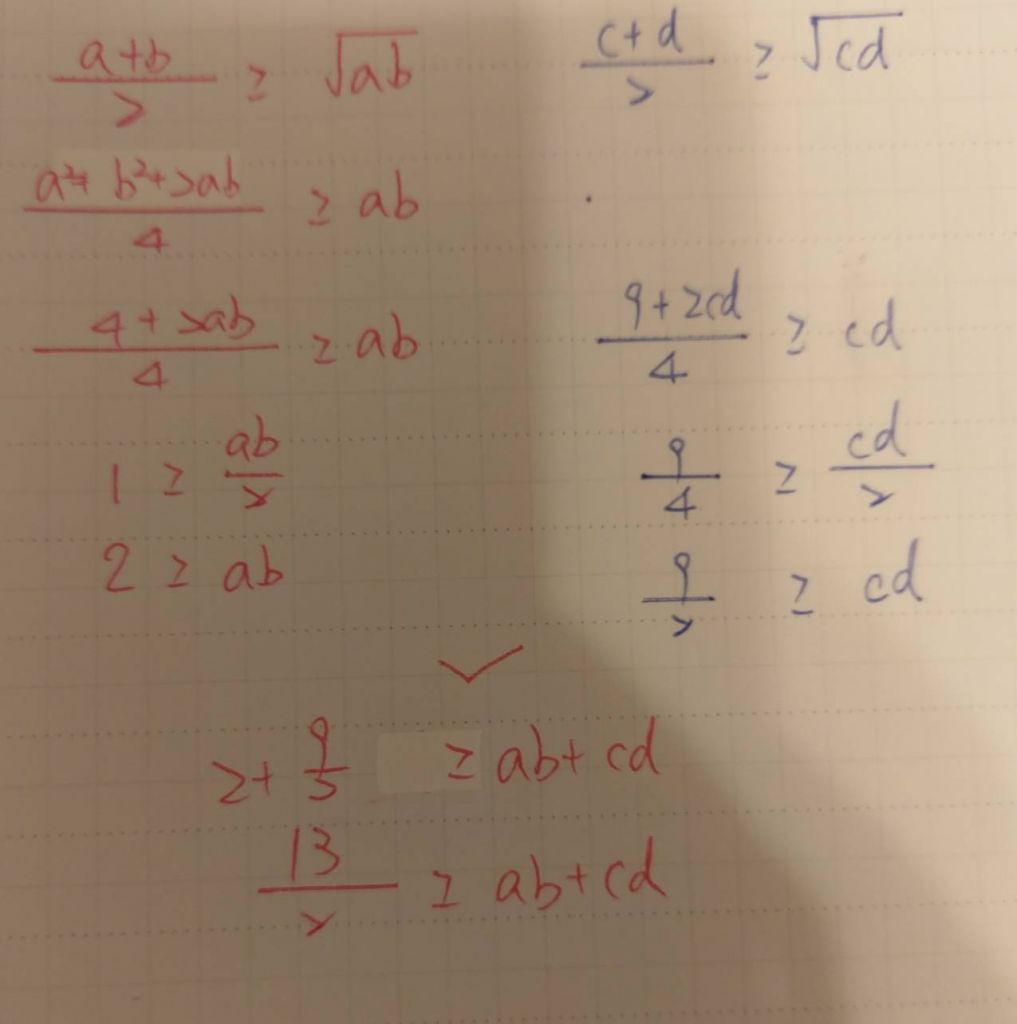 (a+b)/2 ≥ √ab
(a²+b²+2ab)/4 ≥ ab
(4+2ab)/4 ≥ ab
1 ≥ ab/2
2 ≥ ab
(c+d)/2 ≥ √cd
(9+2cd)/4 ≥ cd
9/4 ≥ cd/2
9/2 ≥ cd
2+9/2 ≥ ab+cd
13/2 ≥ ab+cd